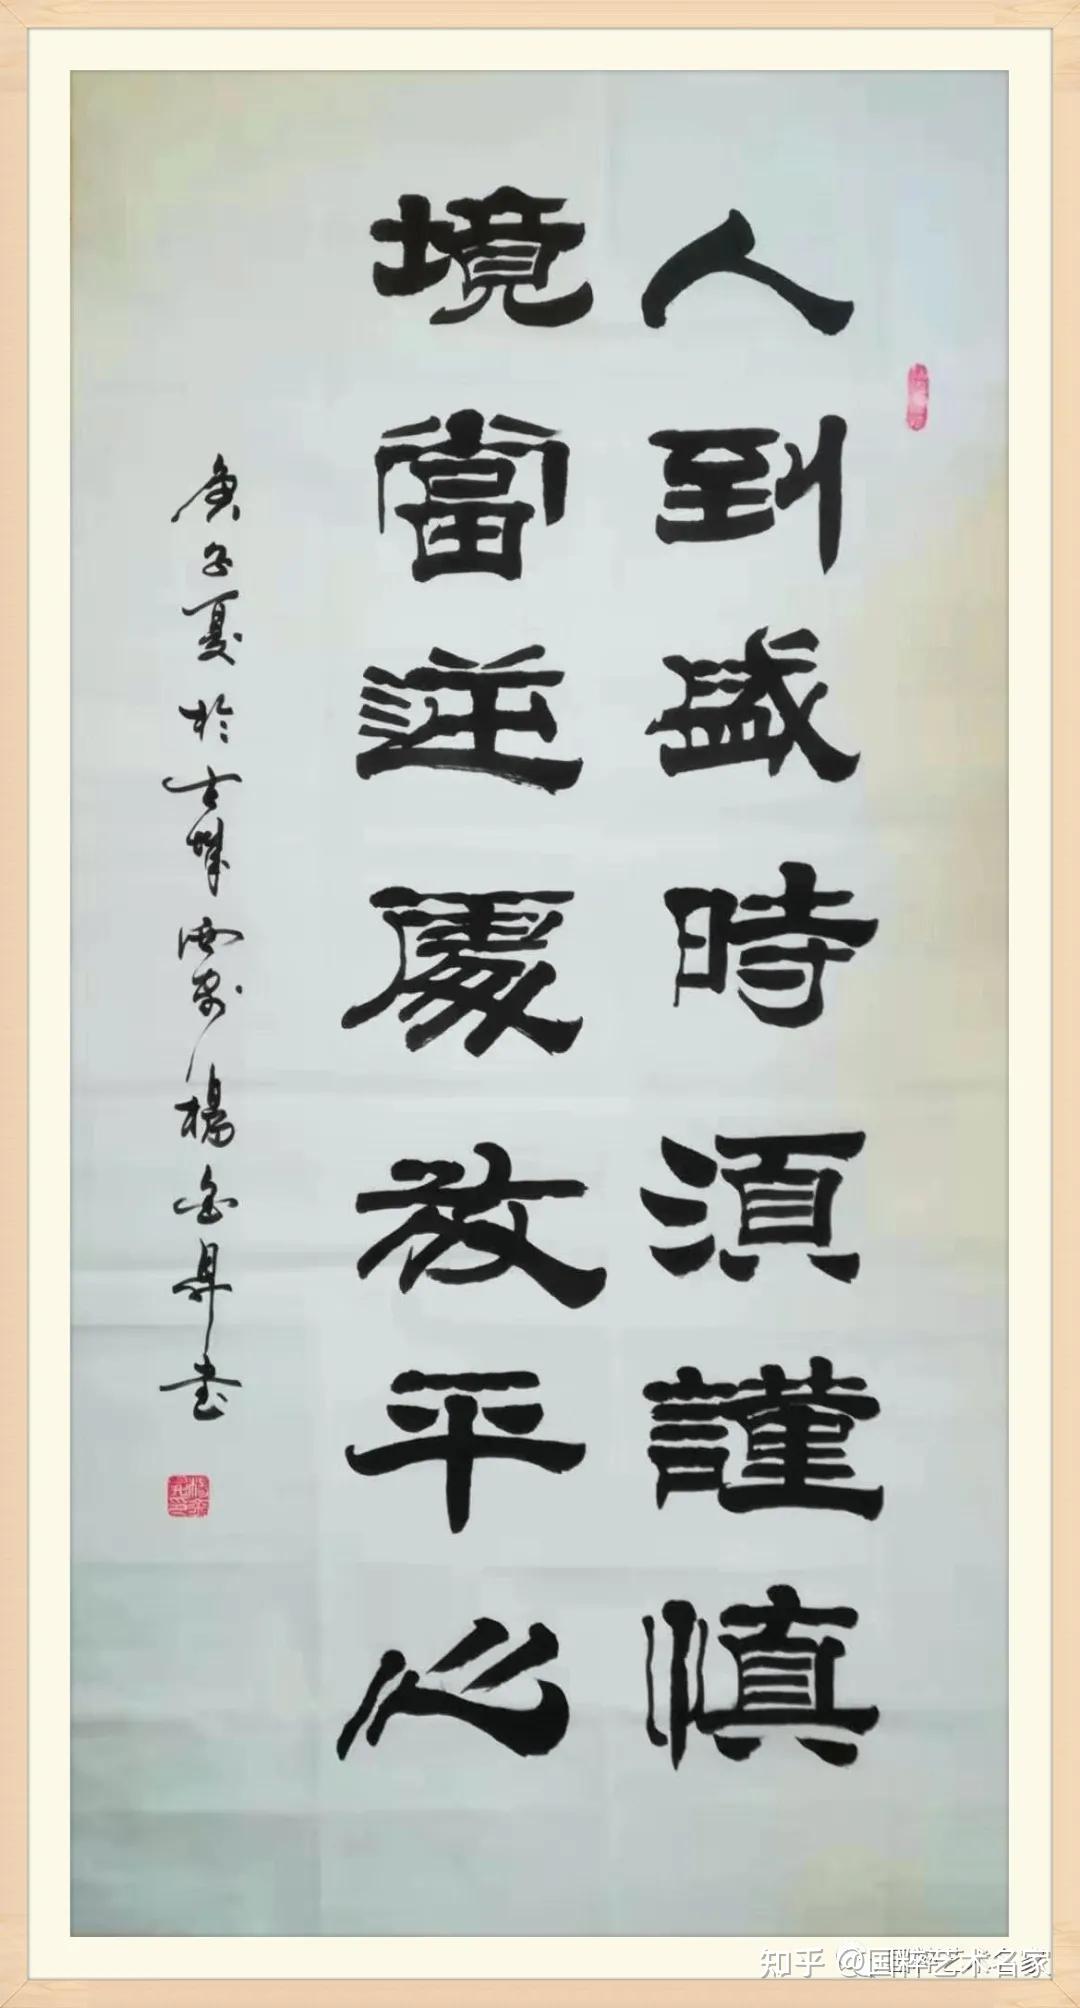 人到盛時須謹慎
境當逆處放平心
庚子夏於古城西安楊金鼎書
知乎 @国粹艺术名家